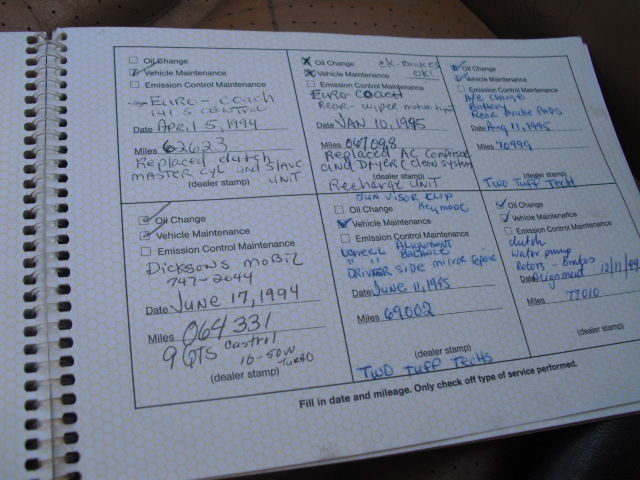 Oil Change
Vehicle Maintenance
Emission Control Maintenance
EURO-COACH
141 S CENTRAL
Date APRIL 5, 1994
Miles 62623
Replaced clutch
MASTER CYL and SLAVE
UNIT
(dealer stamp)
Oil Change ck-Brakes
Vehicle Maintenance OK!
Emission Control Maintenance
EURO COACH
Rear-wiper motor
Date JAN 10, 1995
Miles 067,098
Replaced AC Compressor
and DRYER (clean system
(dealer stamp)
Recharge UNIT
Oil Change
Vehicle Maintenance
Emission Control Maintenance
A/C charge
Battery
Rear Brake PADS
Date Aug 11, 1995
Miles 70999
(dealer stamp)
Two Tuff Techs
Oil Change
Vehicle Maintenance
Emission Control Maintenance
Dicksons mobil
747-2644
Date JUNE 17, 1994
Miles 064331
9 QTS Castrol
10-50W
TURBO
(dealer stamp)
SUN VISOR CLIP
Oil Change Key made
Vehicle Maintenance
Emission Control Maintenance
Wheel ALIGNMENT
" " BALANCE
DRIVER side mirror repair
Date June 11, 1995
Miles 69002
(dealer stamp)
TWO TUFF TECHS
Oil Change
Vehicle Maintenance
Emission Control Maintenance
clutch
water pump
Rotors - Brakes
Date Alignment 12/11/95
Miles 77010
(dealer stamp)
Fill in date and mileage. Only check off type of service performed.